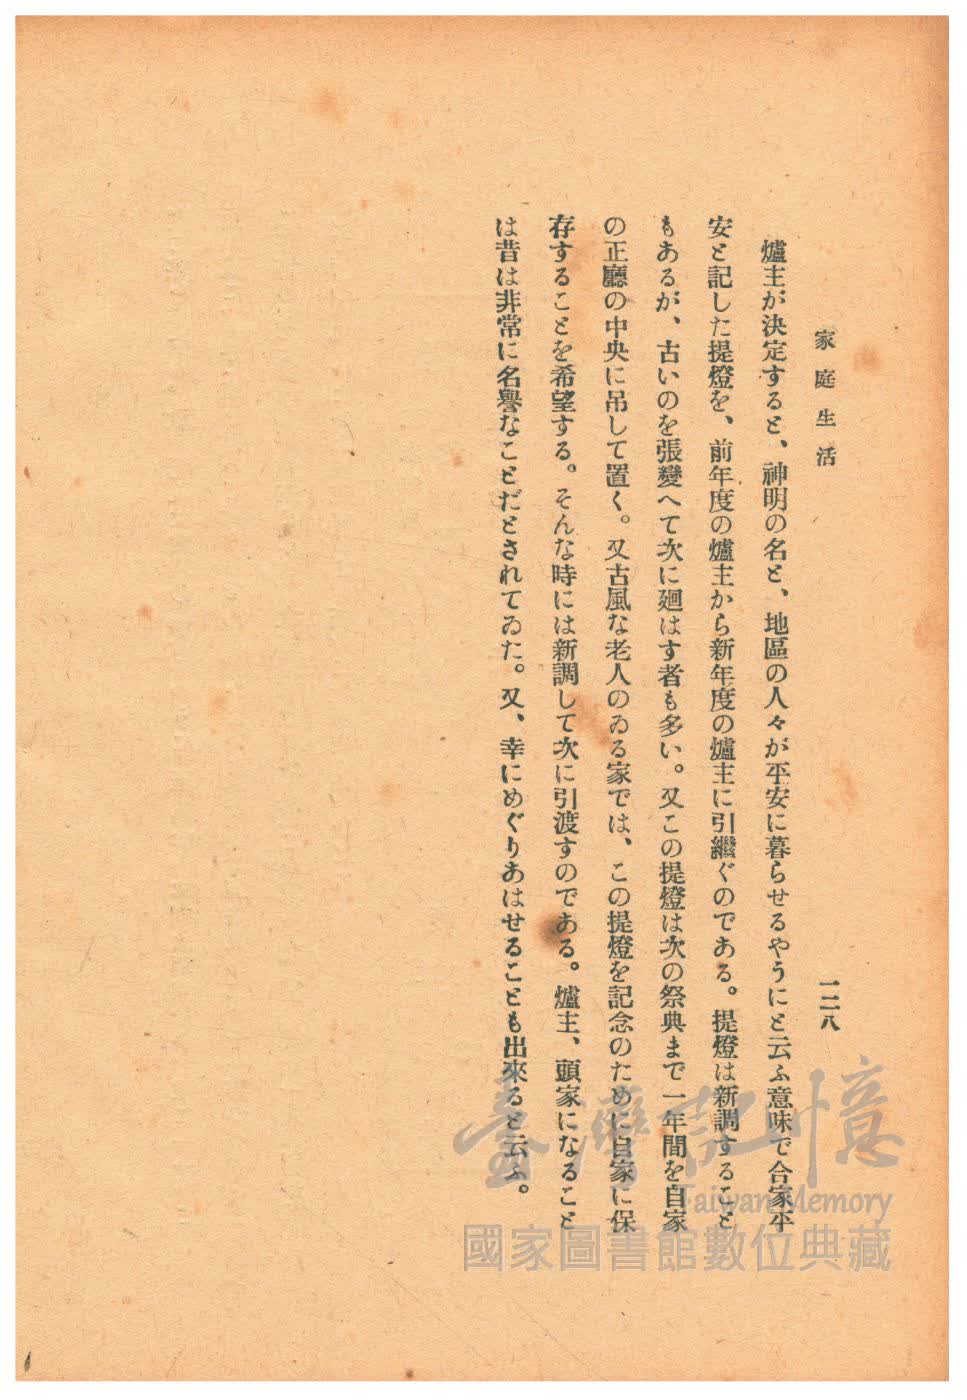 家庭生活
一二八
爐主が決定すると、神明の名と、地區の人々が平安に暮らせるやうにと云ふ意味で合家平
安と記した提燈を、前年度の爐主から新年度の爐主に引繼ぐのである。提燈は新調すること
もあるが、古いのを張變へて次に廻はす者も多い。又この提燈は次の祭典まで一年間を自家
の正廳の中央に吊して置く。又古風な老人のゐる家では、この提燈を記念のために自家に保
存することを希望する。そんな時には新調して次に引渡すのである。爐主、頭家になること
は昔は非常に名譽なことだとされてゐた。又、幸にめぐりあはせることも出來ると云ふ。
臺灣記憶
Taiwan Memory
國家圖書館數位典藏